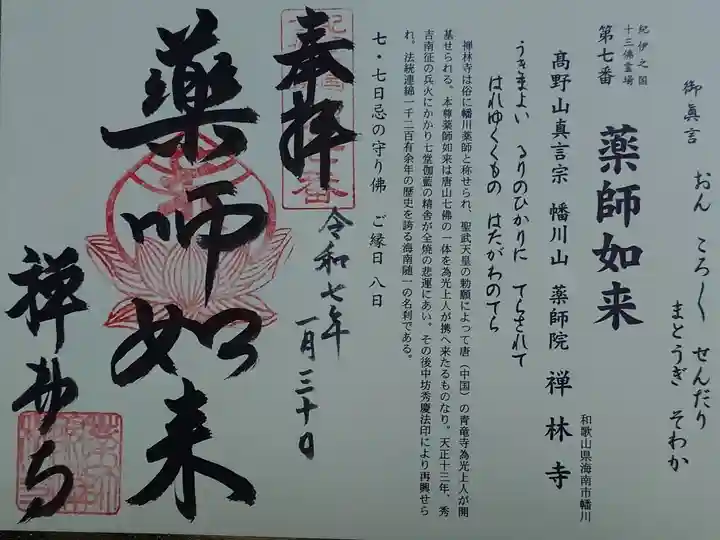 御真言
おん ころ〳〵 せんだり
まとうぎ そわか
紀伊之国
十三佛霊場
第七番 薬師如来
和歌山県海南市幡川
高野山真言宗 幡川山 薬師院 禅林寺
うきまよい るりのひかりに てらされて
はれゆくくもの はたがわのてら
禅林寺は俗に幡川薬師と称せられ、聖武天皇の勅願によって唐（中国）の青竜寺為光上人が開
基せられる。本尊薬師如来は唐山七佛の一体を為光上人が携へ来たるものなり。天正十三年、秀
吉南征の兵火にかかり七堂伽藍の精舎が全焼の悲運にあい。その後中坊秀慶法印により再興せら
れ、法統連綿一千二百有余年の歴史を誇る海南随一の名刹である。
七・七日忌の守り佛 ご縁日 八日
奉拝
令和七年
一月三十日
薬師如来
禅林寺